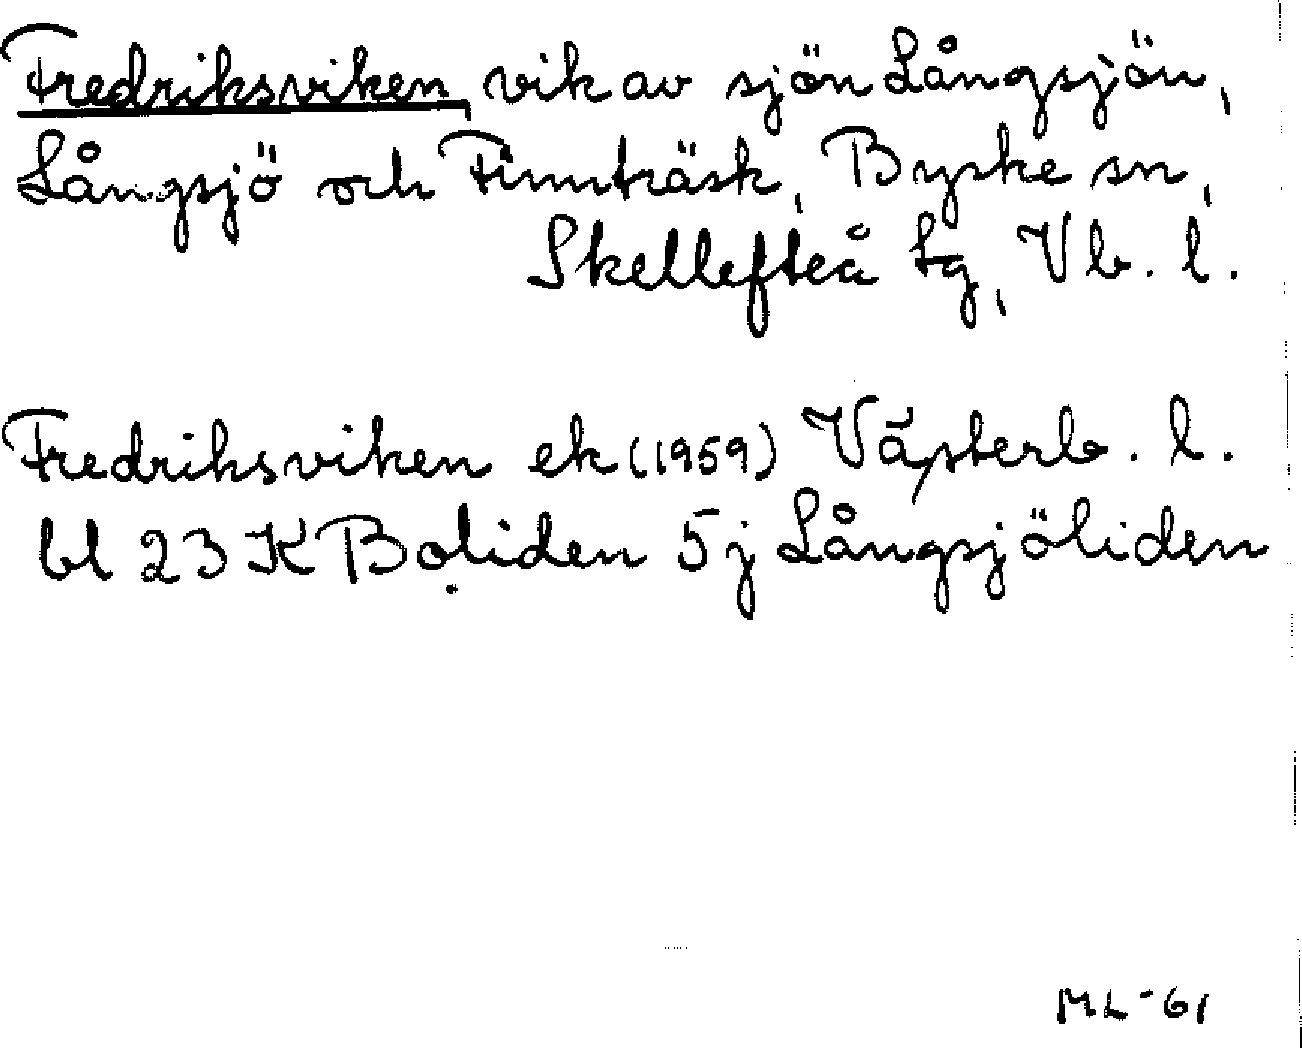 Fredriksviken, vik av sjön Långsjön,
Långsjö och Finnträsk, Byske sn,
Skellefteå tg, Vb. l.
Fredriksviken ek (1959) Västerb. l.
bl 23 K Boliden 5 j Långsjöliden
ML-61